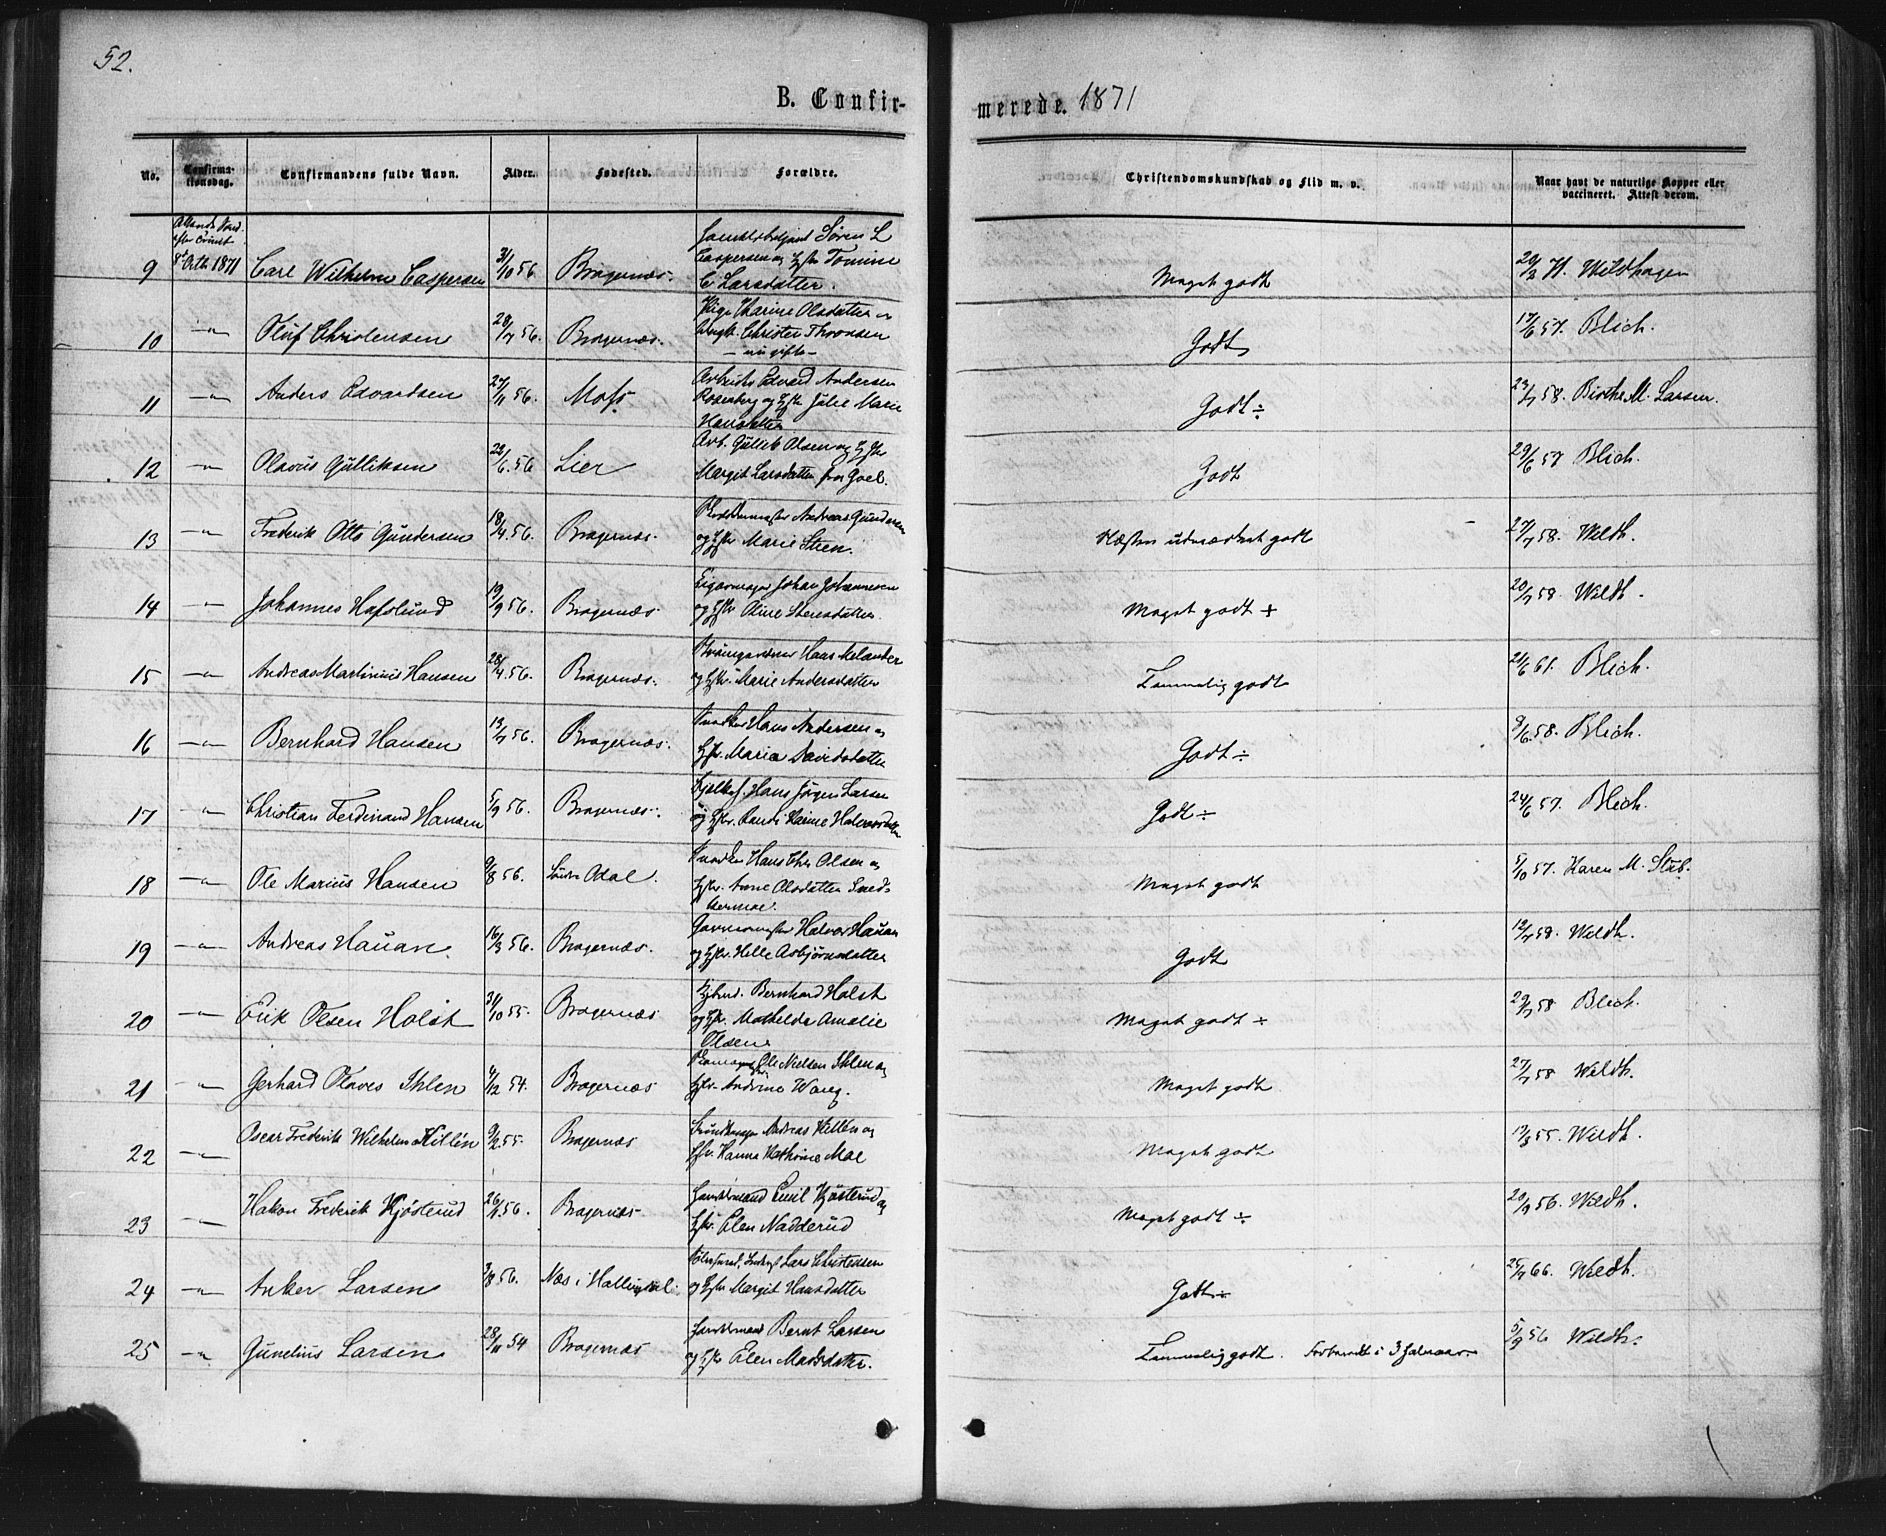 52.
B. Confir-
merede. 1871
No. Confirma-tionsdag. Confirmandens fulde Navn. Alder. Fødested. Forældre. Christendomskundskab og Flid m. v. Naar havt de naturlige Kopper eller vaccineret. Attest derom.
8de Octb 1871
9 Carl Wilhelm Caspersen 31/10 56. Bragernæs. Søren L Caspersen og Hstr Tomine C Larsdatter. Meget godt H. Wildhagen
10 -"- Oluf Christensen 28/7 56. Bragernæs. Pige Karine Olsdatter Ungk. Christen Thronsen - nu gifte - Godt 17/6 57. Blich.
11 -"- Anders Edvardsen 27/11 56. Moss. Arbeider Edvard Andersen Rosenberg og Hstr Julie Marie Hansdatter Godt ÷ 23/7 58. Birthe M. Larsen.
12 -"- Olavus Gulliksen 22/6 56 Lier Arb. Gullik Olsen og Hstr Margit Larsdatter fra Goel. Godt 29/6 57 Blich.
13 -"- Frederik Otto Gundersen 18/4 56. Bragernæs. Andreas Gundersen og Hstr Marie Steen. Næsten udmærket godt 27/7 58. Wildh.
14 -"- Johannes Hafslund 19/9 56. Bragernæs Johan Johannesen og Hstr Oline Stensdatter. Meget godt + 20/7 58. Wildh.
15 -"- Andreas Martinius Hansen 28/4 56. Bragernæs. Hans Melander og Hstr. Marie Andersdatter Temmelig godt 21/6 61. Blich.
16 -"- Bernhard Hansen 13/7 56. Bragernæs. Snedker Hans Andersen og Hstr. Maria Davidsdatter Godt ÷ 9/6 58. Blich.
17 -"- Christian Ferdinand Hansen 5/9 56. Bragernæs. Hans Jørgen Larsen og Hstr. Randi Karine Halvorsdatter Godt ÷ 24/6 57. Blich.
18 -"- Ole Marius Hansen 9/8 56. Søndre Odal. Snedker Hans Chr Olsen og Hstr. Anne Olsdatter Meget godt 5/10 57. Karen M. Stub.
19 -"- Andreas Hauan 16/3 56. Bragernæs. Garvermester Halvor Hauan og Hstr. Helle Asbjørnsdatter Godt 12/7 58. Wildh.
20 -"- Erik Olsen Holst 31/10 55. Bragernæs Bernhard Holst og Hstr. Mathilde Amalie Olsen Meget godt ÷ 29/7 58 Blich.
21 -"- Gerhard Olaves Ihlen 4/12 54. Bragernæs Ole Nielsen Ihlen og Hstr. Andrine Wang. Meget godt 27/7 58 Wildh.
22 -"- Oscar Frederik Wilhelm Killin 9/2 55. Bragernæs Andreas Killin og Hstr. Hanna Kathrine Moe Meget godt 17/8 55. Wildh.
23 -"- Hakon Frederik Kjøsterud 26/1 56. Bragernæs. Handelsmand Emil Kjøsterud og Hstr. Elen Nadderud Meget godt ÷ 20/9 56. Wildh.
24 -"- Anker Larsen 3/8 56. Næs i Hallingdal. Lars Christensen og Hstr Margit Hansdatter Godt ÷ 25/7 66. Wildh.
25 -"- Gunelius Larsen 28/11 54 Bragernæs Handelsmand Bernt Larsen og Hstr Elen Madsdatter. Temmelig godt. Forberedt i 3 Halvaar 5/9 56 Wildh.